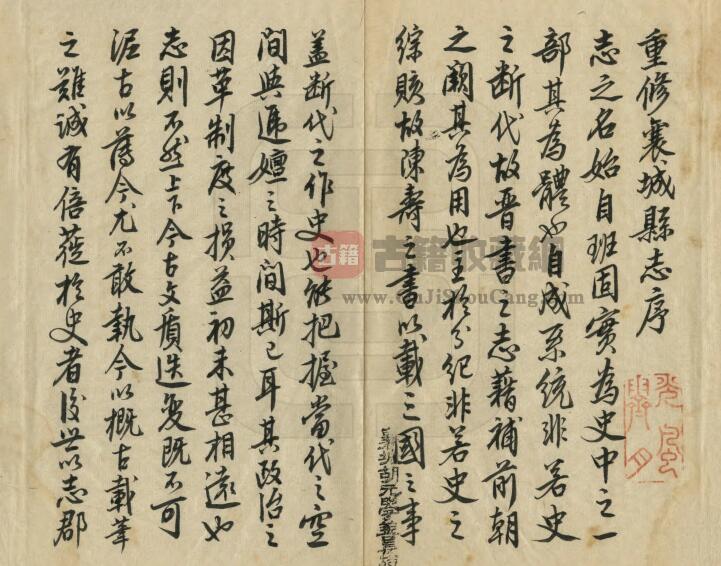 重修襄城縣志序
志之名始自班固實為史中之一
部其為體也自成系統非若史
之断代故晋書之志藉補前朝
之闕其為用也主於分紀非若史之
綜賅故陳壽之書以載三國之事
盖断代之作史也能把握當代之空
間與遞嬗之時間斯已耳其政治之
因革制度之損益初未甚相遠也
志則不然上下今古文質迭变既不可
泥古以薄今尤不敢執今以概古載筆
之難誠有倍蓰於史者後世以志郡
古籍
古籍收藏網
www.GuJiShouCang.com